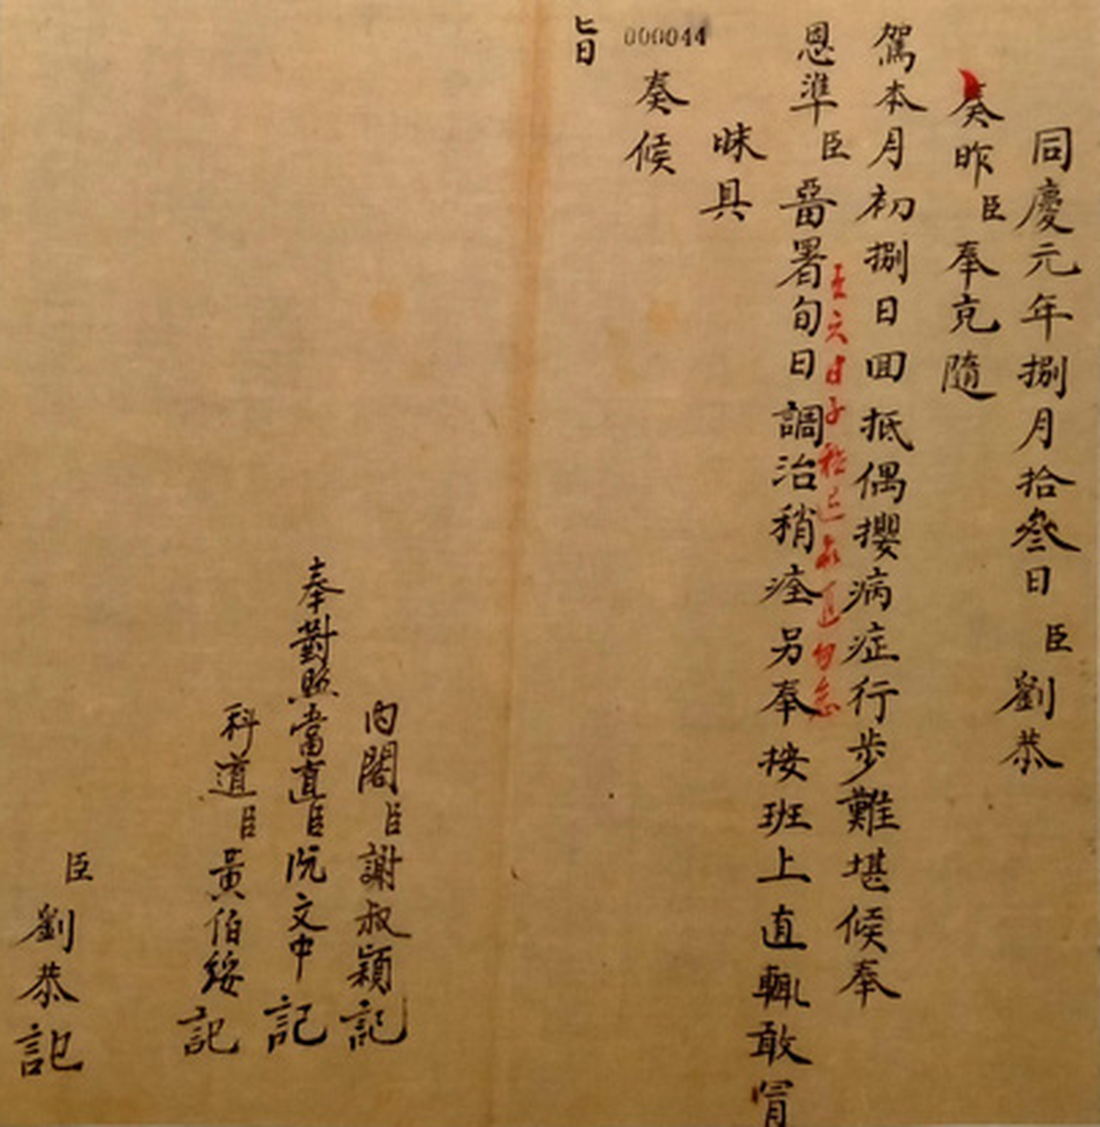 同慶元年捌月拾叄日臣劉恭
奏昨臣奉充隨
駕本月初捌日囬抵偶攖病症行步難堪候奉
五六日子稍已直勿怠
恩準臣畱署旬日調治稍痊另奉按班上直輒敢冐
昧具
000044
奏候
旨
內閣臣謝叔穎記
奉對照當直臣阮文中記
科道臣黃伯綏記
臣劉恭記